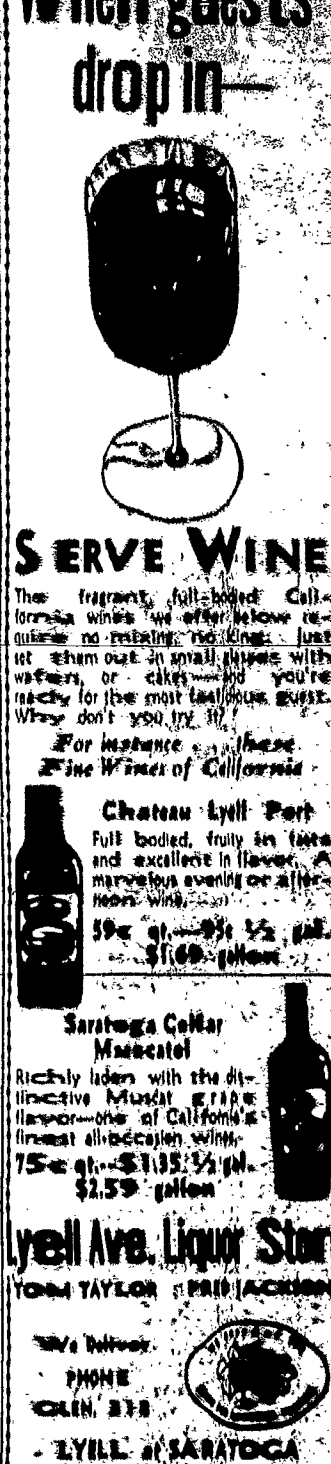 When guests
drop in—
SERVE WINE
The fragrant, full-bodied Cali-
fornia wines we offer below re-
quire no mixing, no icing. Just
set them out in small glasses with
wafers, or cakes—and you're
ready for the most fastidious guest.
Why don't you try it?
For instance . . . these
Fine Wines of California
Chateau Lyell Port
Full bodied, fruity in taste
and excellent in flavor. A
marvelous evening or after-
noon wine.
59c qt.—95c ½ gal.
$1.69 gallon
Saratoga Cellar
Muscatel
Richly laden with the dis-
tinctive Muscat grape
flavor—one of California's
finest all-occasion wines.
75c qt.—$1.35 ½ gal.
$2.59 gallon
Lyell Ave. Liquor Stor
TOM TAYLOR FRED JACKSON
We Deliver
PHONE
GLEN. 
LYELL at SARATOGA